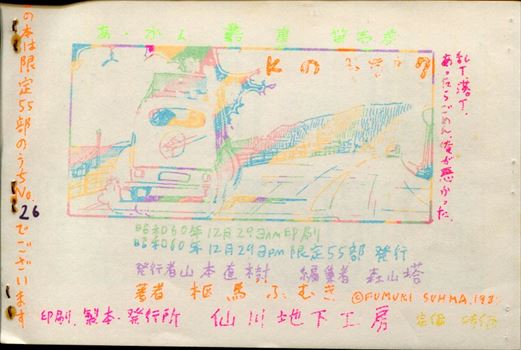 この本は限定55部のうちNo.26でございます
あ・かん 叢書
乱丁落丁.
あったらごめん、俺が悪かった.
昭和60年12月29日AM印刷
昭和60年12月29日PM限定55部 発行
発行者山本直樹 編集者 森山塔
著者 枢馬ふむき ©FUMUKI SUHMA.198
印刷.製本.発行所 仙川地下工房
定価